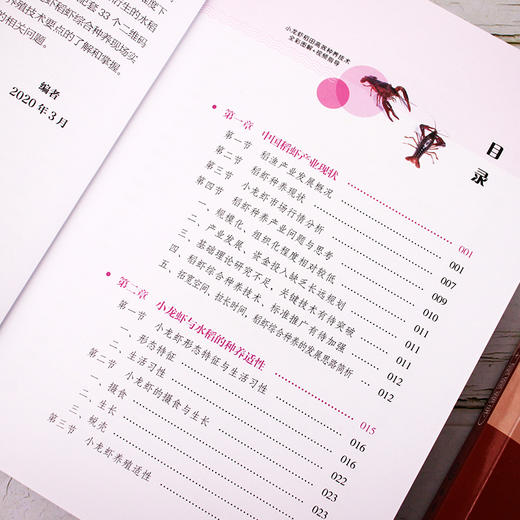 度下
行生的水稻
配套 33 个二维码
虾稻虾综合种养现场实
养殖技术要点的了解和掌握。
的相关问题。
编者
2020 年 3 月
小龙虾稻田高效种养技术
全彩图解+视频指导
目录
第一章 中国稻虾产业现状 001
第一节 稻渔产业发展概况 001
第二节 稻虾种养现状 007
第三节 小龙虾市场行情分析 009
第四节 稻虾种养产业问题与思考 010
一、规模化、组织化程度相对较低 011
二、产业发展、资金投入缺乏长远规划 011
三、基础理论研究不足,关键技术有待突破 011
四、稻虾综合种养技术、标准推广有待加强 012
五、拓宽空间,拉长时间,稻虾综合种养的发展思路简析 012
第二章 小龙虾与水稻的种养适性 015
第一节 小龙虾形态特征与生活习性 016
一、形态特征 016
二、生活习性 022
第二节 小龙虾的摄食与生长 023
一、摄食 023
二、生长
三、蜕壳
第三节 小龙虾养殖适性